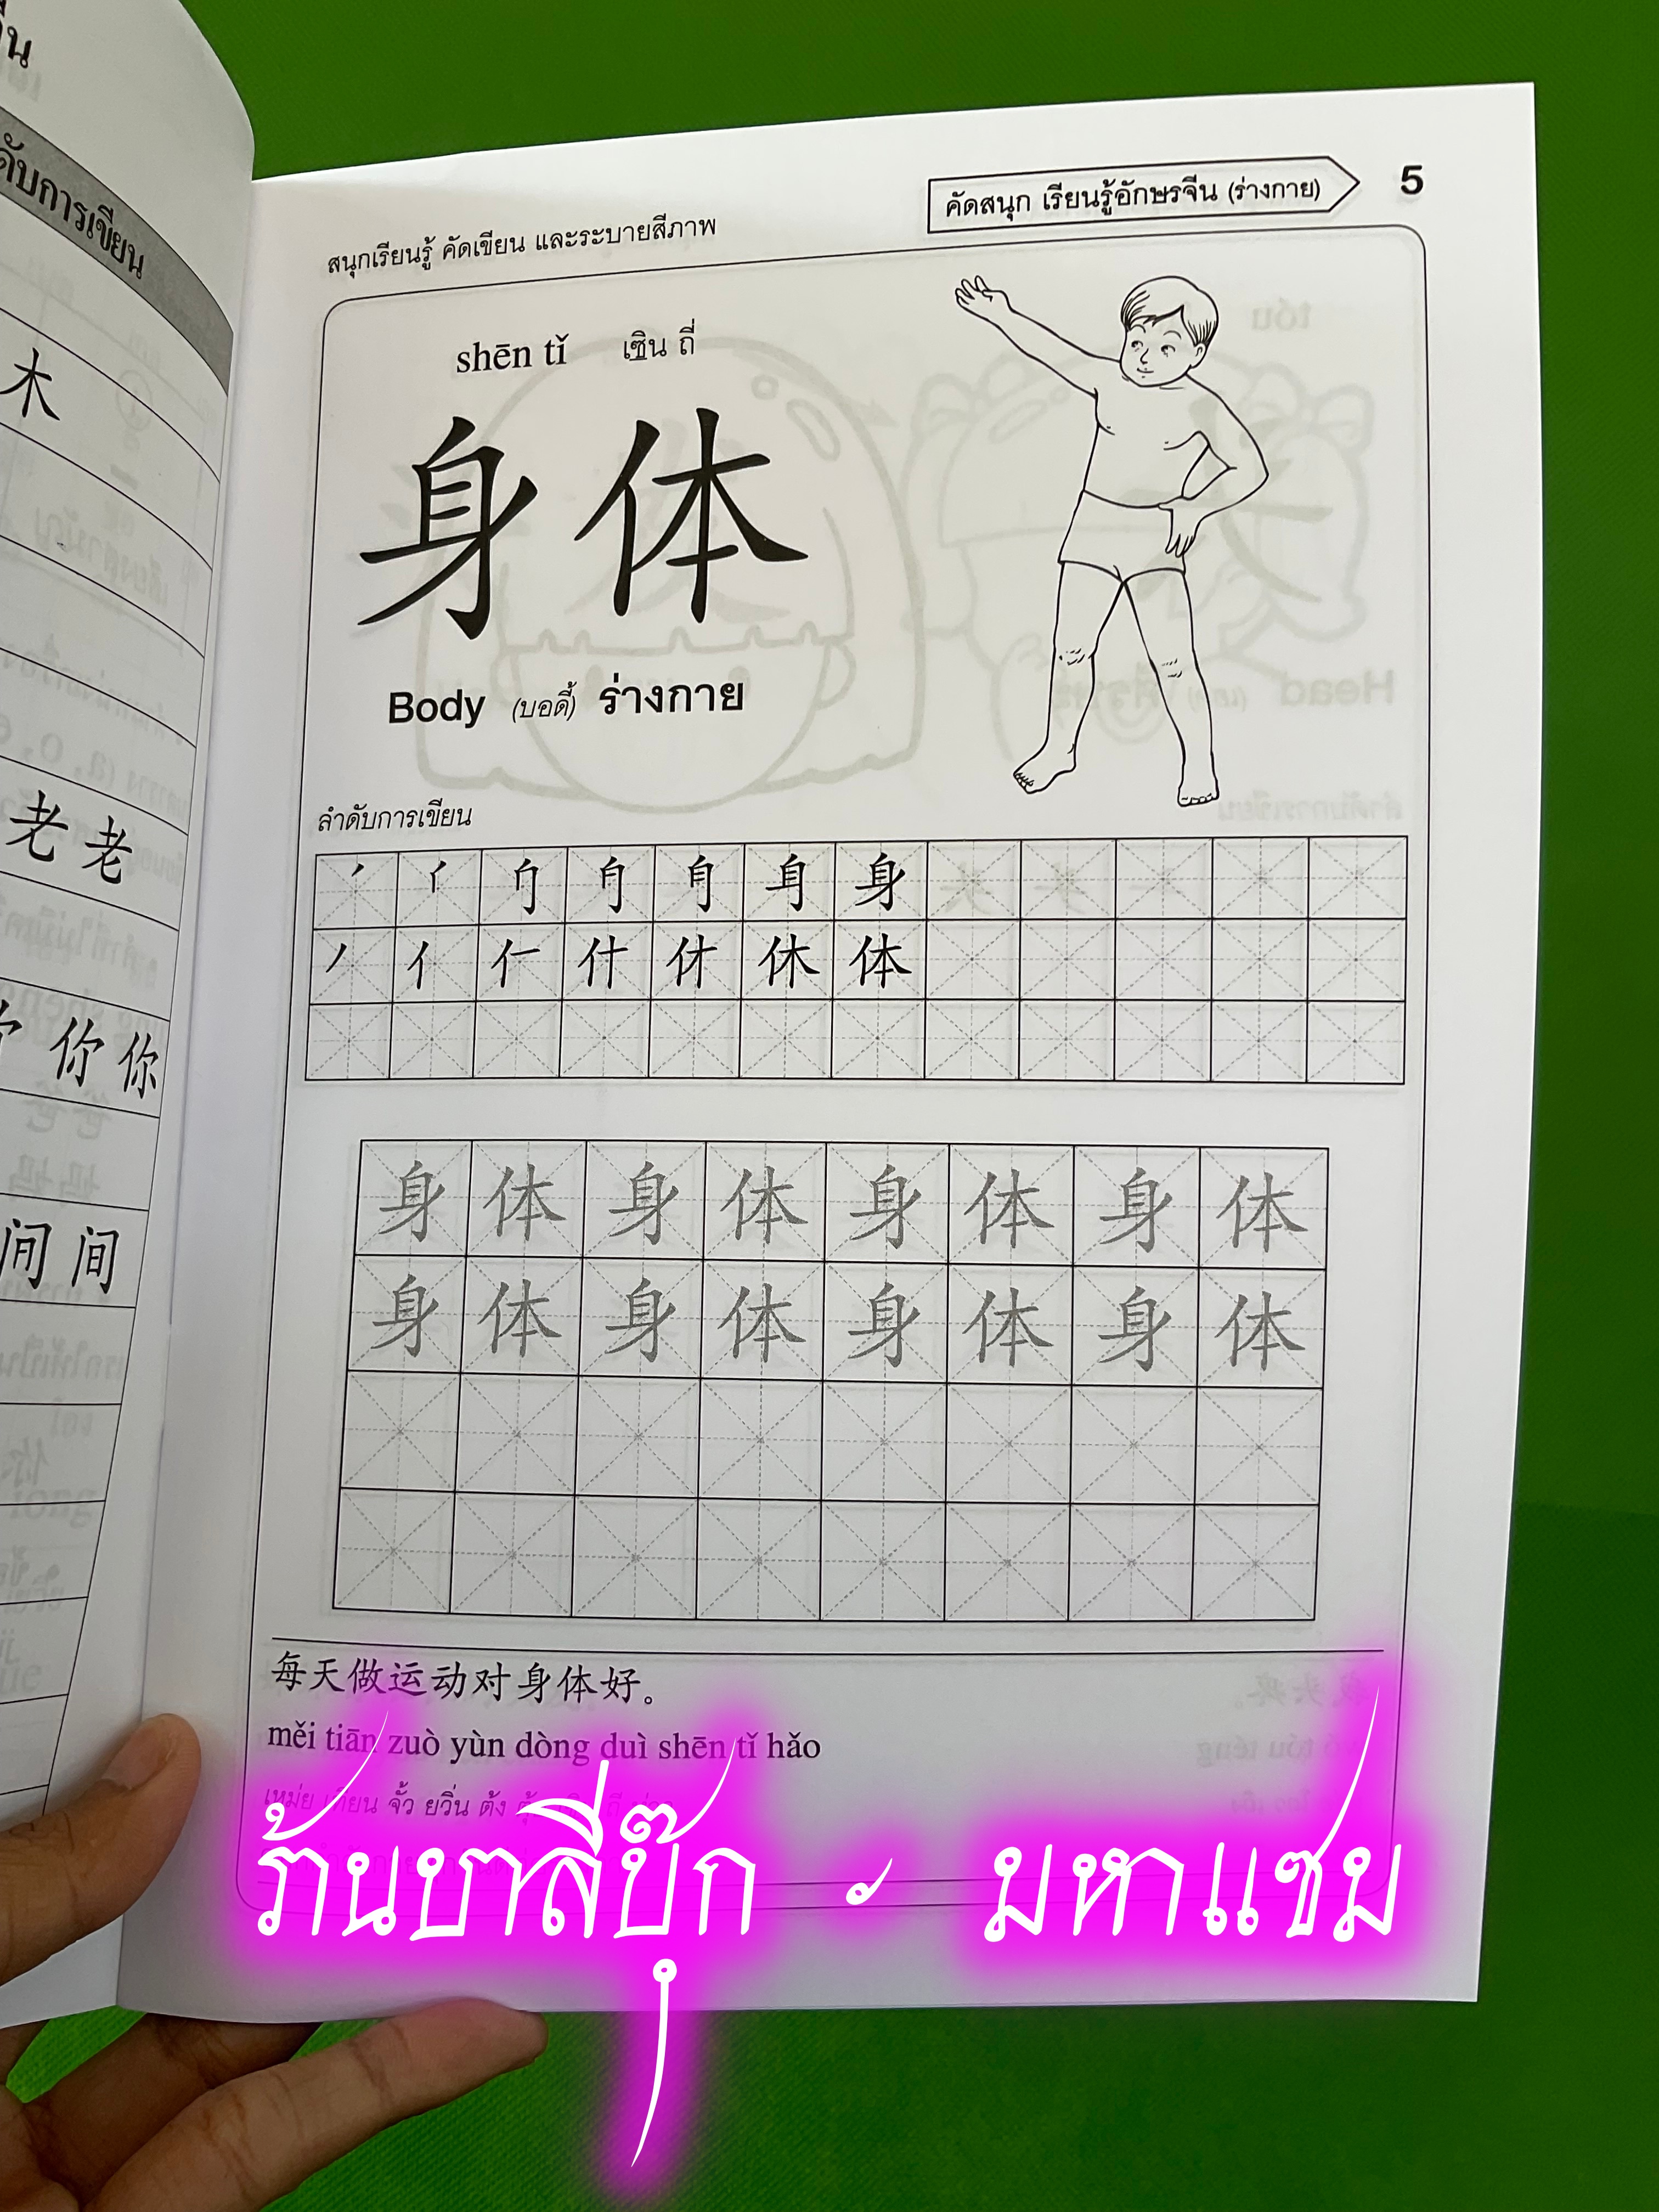 ดับการเขียน
木
老 老
你 你
间 间
คัดสนุก เรียนรู้อักษรจีน (ร่างกาย) 5
สนุกเรียนรู้ คัดเขียน และระบายสีภาพ
shēn tǐ เซิน ถี่
身体
Body (บอดี้) ร่างกาย
ลำดับการเขียน
身
体
身 体 身 体 身 体 身 体
身 体 身 体 身 体 身 体
每天做运动对身体好。
měi tiān zuò yùn dòng duì shēn tǐ hǎo
เหม่ย เทียน จั้ว ยวิ่น ต้ง
ร้านบาลีบุ๊ก - มหาแซม